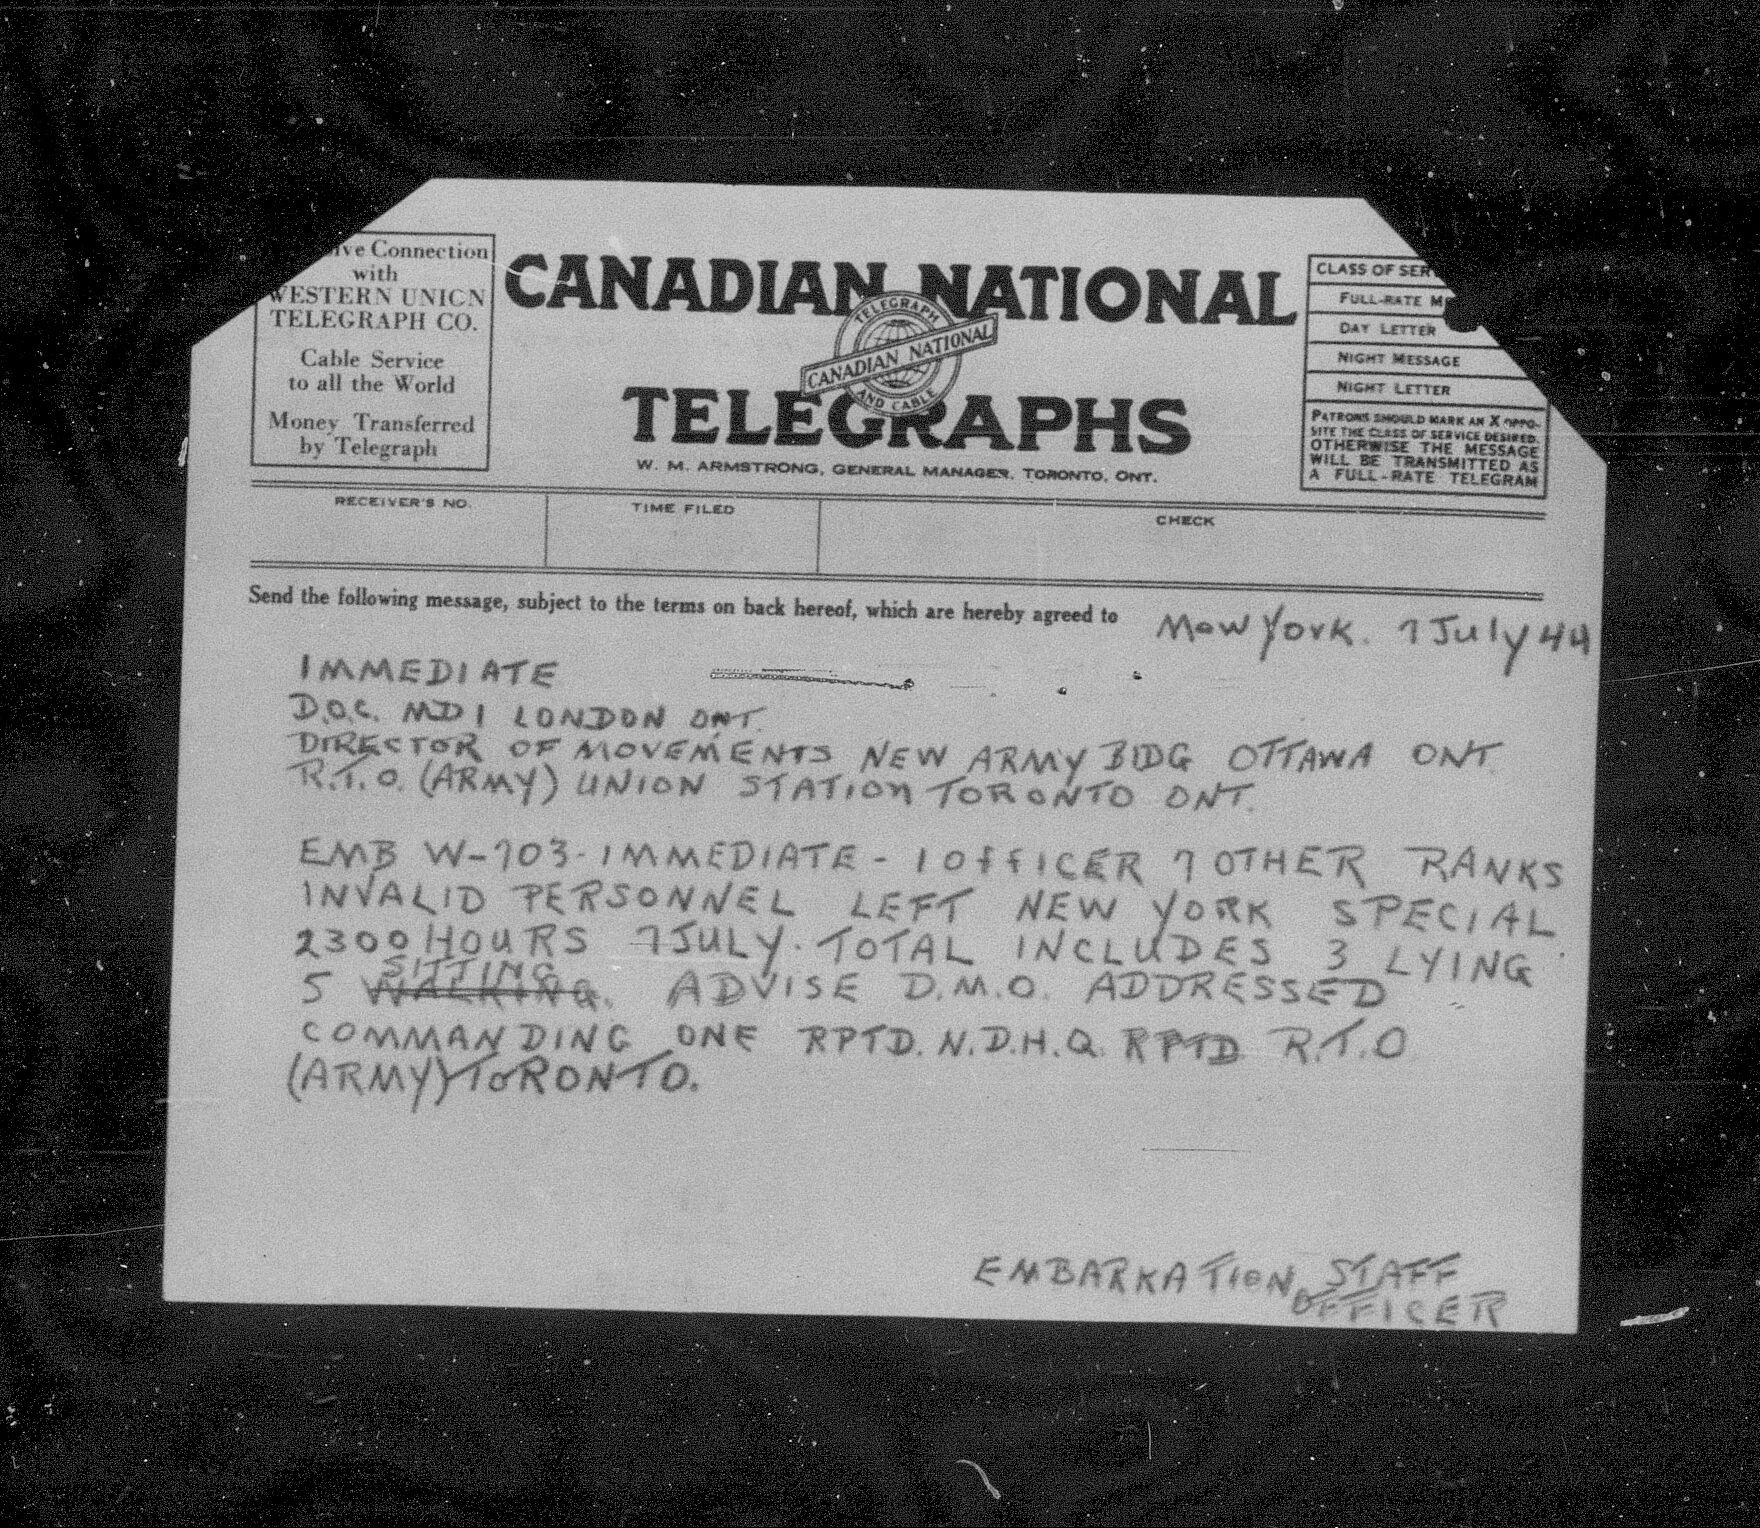 ive Connection
with
WESTERN UNION
TELEGRAPH CO.
Cable Service
to all the World
Money Transferred
by Telegraph
CANADIAN NATIONAL
TELEGRAPH
CANADIAN NATIONAL
AND CABLE
TELEGRAPHS
W. M. ARMSTRONG, GENERAL MANAGER, TORONTO, ONT.
CLASS OF SER
FULL-RATE M
DAY LETTER
NIGHT MESSAGE
NIGHT LETTER
PATRONS SHOULD MARK AN X OPPO-
SITE THE CLASS OF SERVICE DESIRED.
OTHERWISE THE MESSAGE
WILL BE TRANSMITTED AS
A FULL-RATE TELEGRAM
RECEIVER'S NO. TIME FILED CHECK
Send the following message, subject to the terms on back hereof, which are hereby agreed to
New York. 7 July 44
IMMEDIATE
D.O.C. MD 1 LONDON ONT.
DIRECTOR OF MOVEMENTS NEW ARMY BLDG OTTAWA ONT.
R.T.O. (ARMY) UNION STATION TORONTO ONT.
EMB W-703-IMMEDIATE - 1 OFFICER 7 OTHER RANKS
INVALID PERSONNEL LEFT NEW YORK SPECIAL
2300 HOURS 7 JULY. TOTAL INCLUDES 3 LYING
SITTING
5 WALKING. ADVISE D.M.O. ADDRESSED
COMMANDING ONE RPTD. N.D.H.Q. RPTD R.T.O
(ARMY) TORONTO.
EMBARKATION STAFF
OFFICER